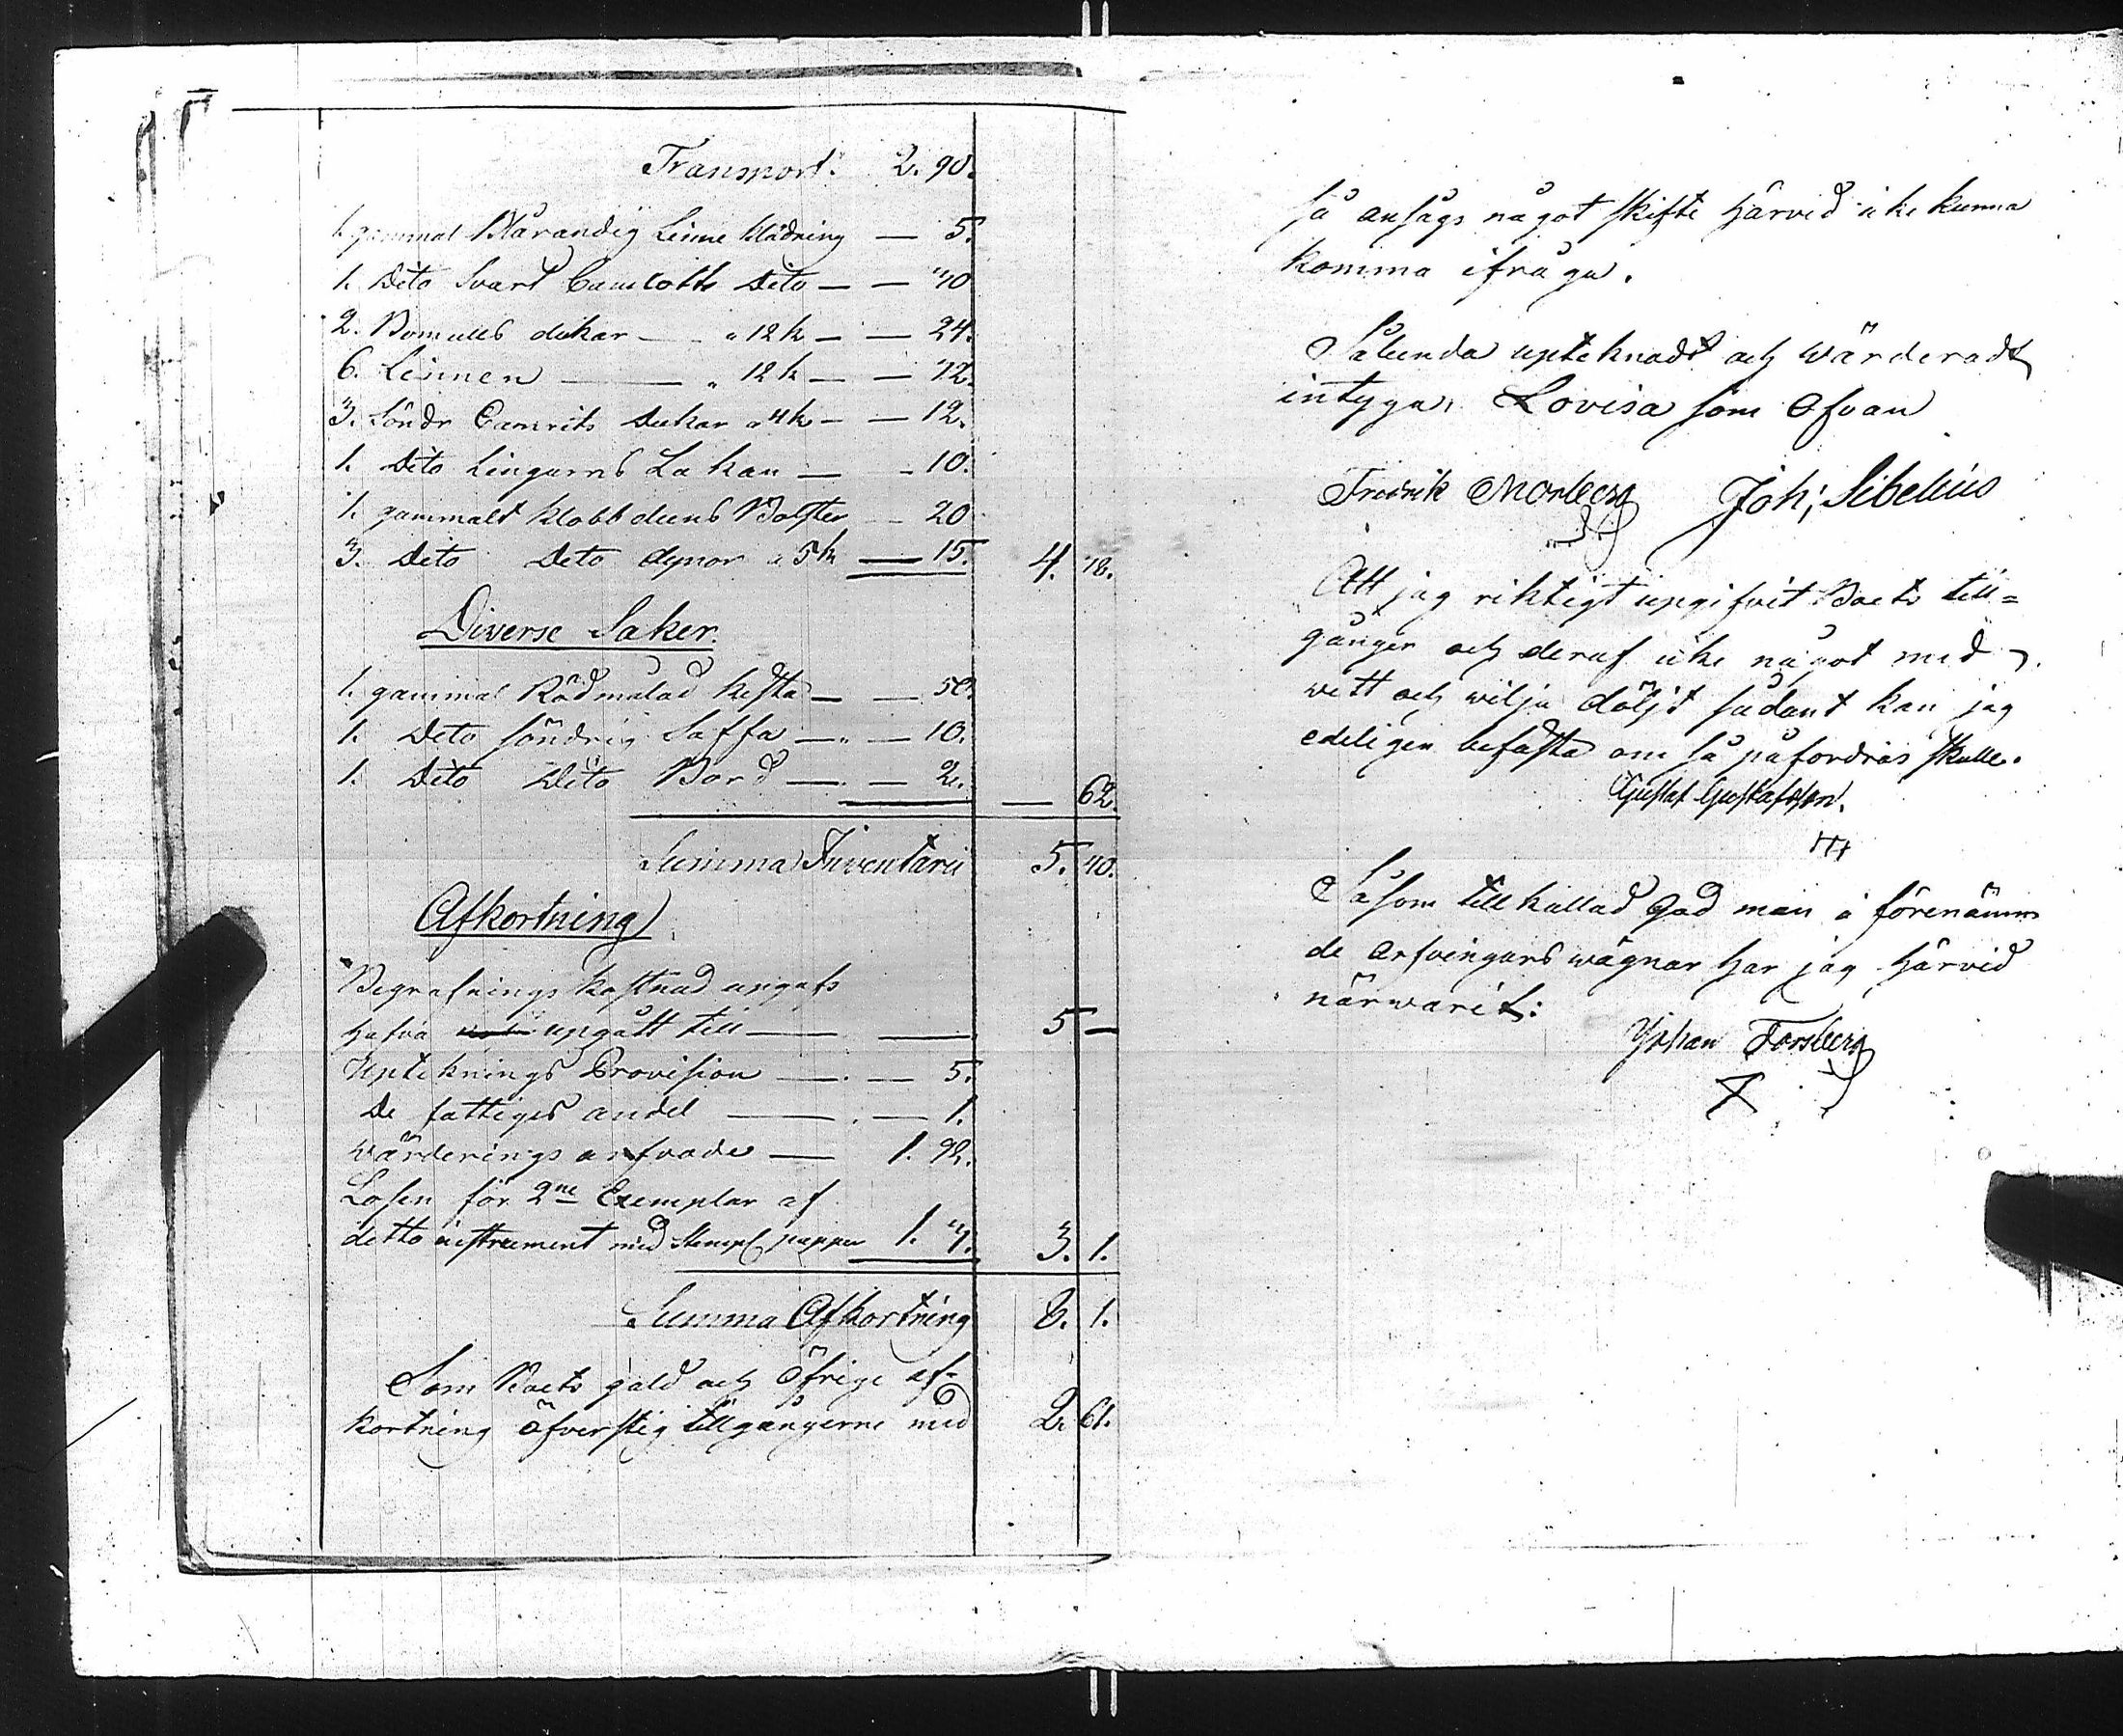 Transport. 2. 90.
1. gammal Blårandig Linne klädning — 5.
1. Dito Svart Camlotts Dito — — 20
2. Bomulls dukar — " 12 k — — 24.
6. Linnen — " 12 k — — 72.
3. söndr Camrits Dukar a 4 k — — 12.
1. Dito Lingarns Lakan — - 10.
1. gammalt klabbduns Bolster — 20
3. Dito Dito dynor a 5 k — 15. 4. 78.
Diverse Saker.
1. gammal Rödmålad kista — — 50.
1. Dito söndrig Saffa — — 10.
1. Dito Dito Bord — — 2. — 62.
Summa Inventarii 5. 40.
Afkortning
Begrafnings kostnad angafs
hafva upgått till — — 5 —
Uptecknings Provision — — 5.
De fattiges andel — — 1.
Wärderings arfvode — 1. 92.
Lösen för 2ne Exemplar af
detta instrument med Stempl papper 1. 3. 3. 1.
Summa Afkortning 8. 1.
Som Boets gäld och öfrige af-
kortning öfverstig tillgångerne med 2. 61.
så ansågs något skifte härvid icke kunna
komma ifråga.
Sålunda uptecknadt och wärderadt
intyga, Lovisa som ofvan
Fredrik Morberg Joh; Sibelius
Att jag riktigt upgifvit Boets till=
gångar och deraf icke något med
wett och wilja döljt sådant kan jag
edeligen befästa om så påfordras skulle.
Gustaf Gustafsson.
Såsom tillkallad god man å förenämn
de arfvingars wägnar har jag härvid
närwarit:
Johan Forsberg